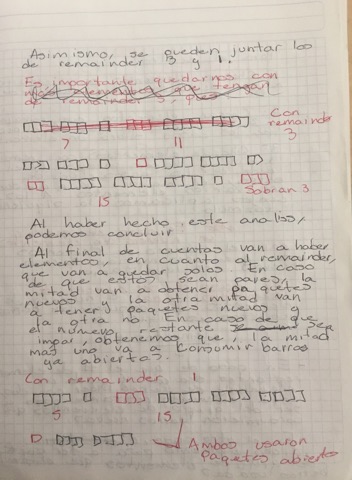 Asimismo, se pueden juntar los
de remainder 3 y 1.
Es importante quedarnos con
de remainder 3,
Con
remainder
3
7 11
15
Sobran 3
Al haber hecho este analisis,
podemos concluir
Al final de cuentas van a haber
elementos, en cuanto al remainder,
que van a quedar solos. En caso
de que estos sean pares, la
mitad van a obtener paquetes
nuevos y la otra mitad van
a tener paquetes nuevos y
la otra no. En caso de que
el numero restante sea
impar, obtenemos que, la mitad
mas uno va a consumir barras
ya abiertas.
Con remainder 1
5 15
Ambos usaron
paquetes abiertos